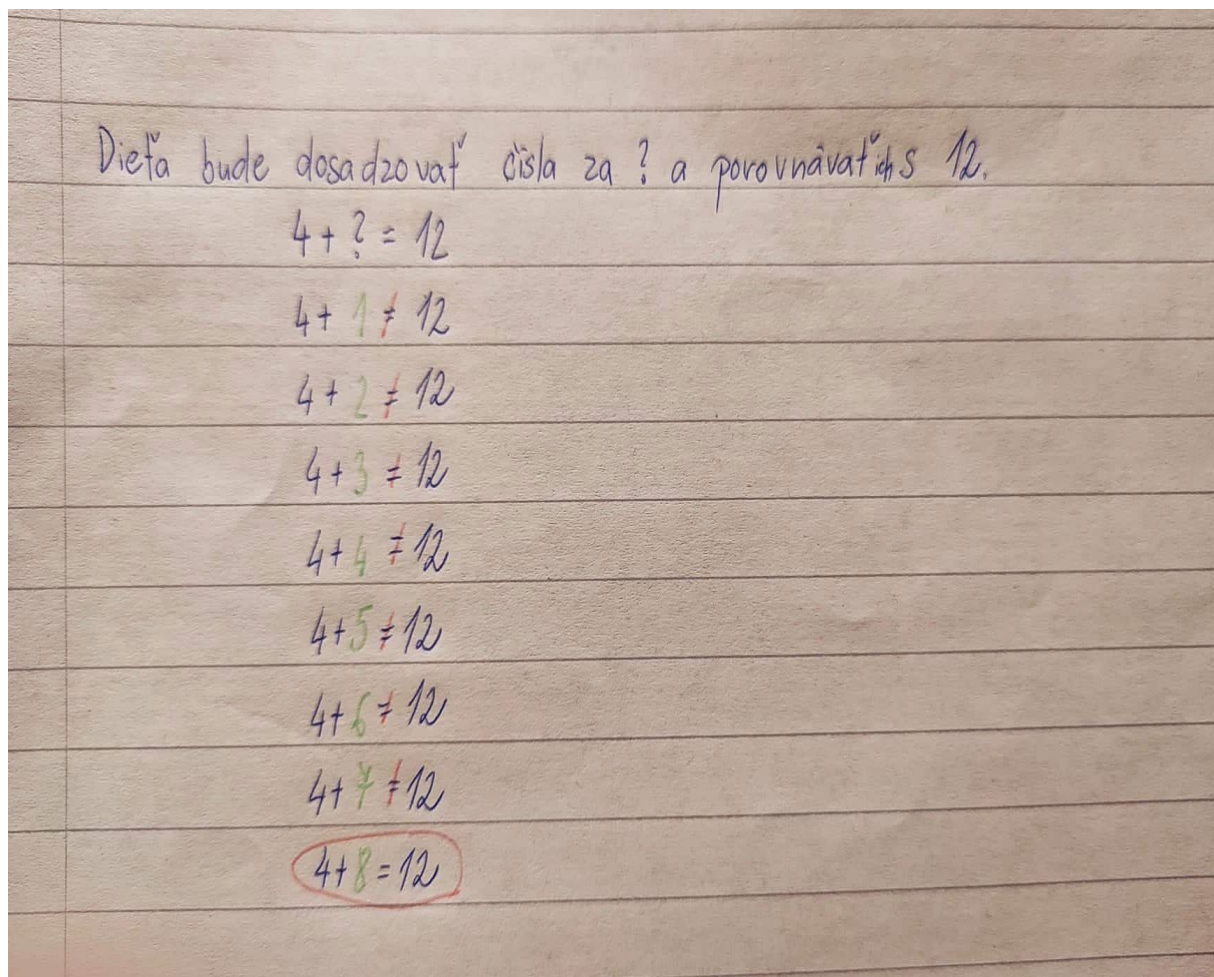 Dieťa bude dosadzovať čísla za ? a porovnávať ich s 12.
4 + ? = 12
4 + 1 ≠ 12
4 + 2 ≠ 12
4 + 3 ≠ 12
4 + 4 ≠ 12
4 + 5 ≠ 12
4 + 6 ≠ 12
4 + 7 ≠ 12
4 + 8 = 12